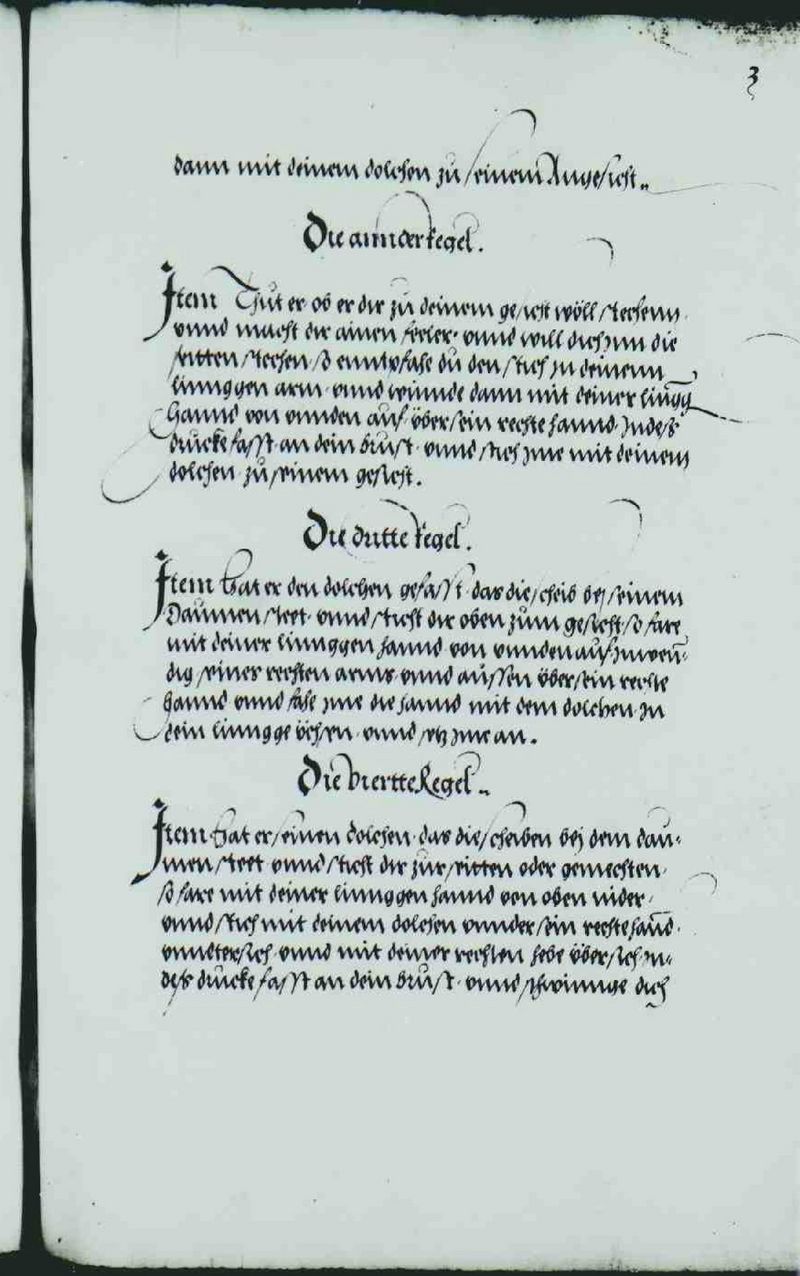 3
dann mit deinem dolchen zu seinem Angesicht..
Die annder Regel.
Item Thut er ob er dir zu deinem gesicht wöll stechenn
vnnd macht dir ainen feeler vnnd will dich inn die
seitten stechen so enntpfahe du den stich in deinenn
linnggen arm vnnd winnde dann mit deiner lingg
Hannd von vnnden auf über sein rechte hannd Indes
drucke fasst an dein brust vnnd stich ime mit deinem
dolchen zu seinem gesicht.
Die dritte Regel.
Item Hat er den dolchen gefasst das die scheib bej seinem
Daumen steet vnnd sticht dir oben zum gesicht so fare
mit deiner linnggen hannd von vnnden auf Inwen¬
dig seines rechten arms vnnd aussen über sein rechte
Hannd vnnd fahe ime die hannd mit dem dolchen in
dein lingge üchsen vnnd setz ime an.
Die Viertte Regel..
Item Hat er seinen dolchen das die scheiben bej dem dau¬
men steet vnnd sticht dir zur seitten oder gemechten
so fare mit deiner linnggen hannd von oben nider
vnnd stich mit deinem dolchen vnnder sein rechte hand
vnndtersich vnnd mit deiner rechten hebe übersich in¬
des drucke fasst an dein brust vnnd schwinnge dich